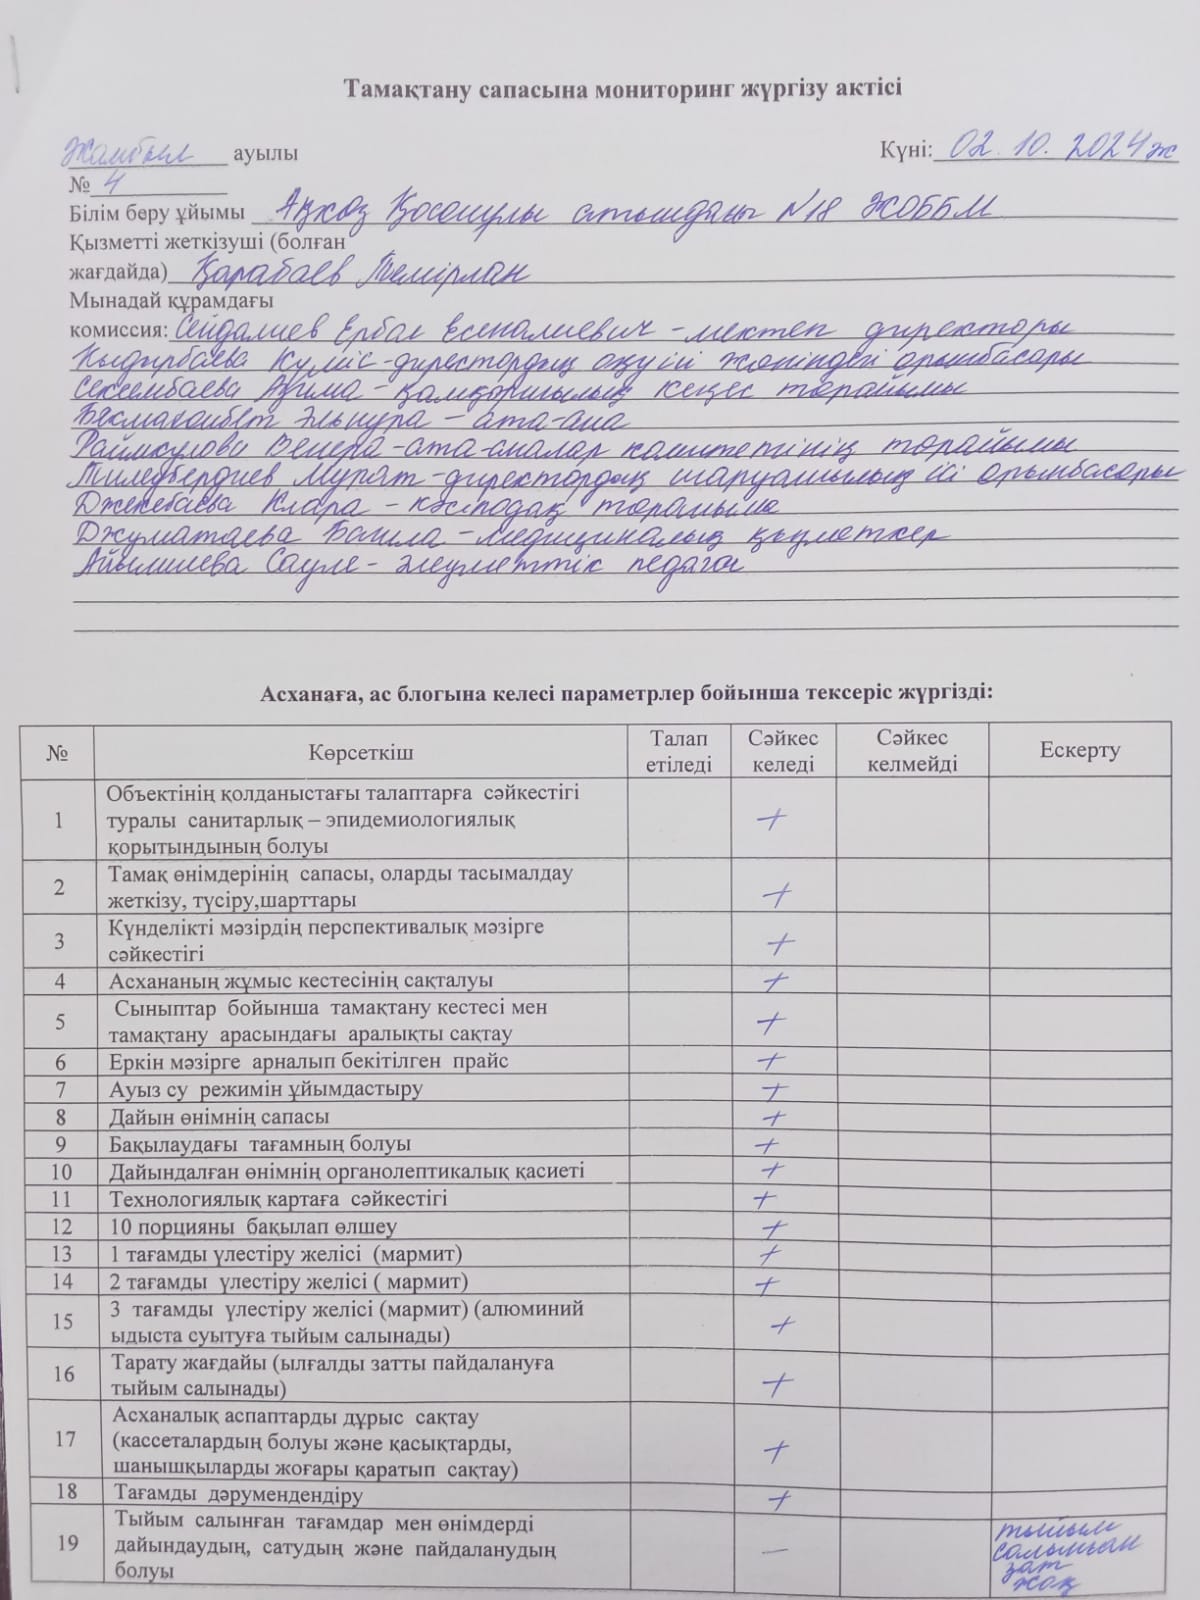 Тамақтану сапасына мониторинг жүргізу актісі
Жамбыл ауылы Күні: 02.10.2024ж
№ 4
Білім беру ұйымы Аққоз Қосанұлы атындағы N18 ЖОББМ
Қызметті жеткізуші (болған
жағдайда) Қарабаев Темірлан
Мынадай құрамдағы
комиссия: Сейдалиев Ербол Есеналиевич - мектеп директоры
Кыдырбаева Күміс - директордың оқу ісі жөніндегі орынбасары
Секембаева Азима - қамқоршылық кеңес төрайымы
Бекмаганбет Эльнура - ата-ана
Раймкулова Венера - ата-аналар комитетінің төрайымы
Тилебердиев Мурат - директордың шаруашылық ісі орынбасары
Джекебаева Клара - кәсіподақ төрайымы
Джуматаева Багила - медициналық қызметкер
Сауле - әлеуметтік педагог
Асханаға, ас блогына келесі параметрлер бойынша тексеріс жүргізді:
№ Көрсеткіш Талап етіледі Сәйкес келеді Сәйкес келмейді Ескерту
1 Объектінің қолданыстағы талаптарға сәйкестігі
туралы санитарлық – эпидемиологиялық +
қорытындының болуы
2 Тамақ өнімдерінің сапасы, оларды тасымалдау
жеткізу, түсіру,шарттары +
3 Күнделікті мәзірдің перспективалық мәзірге
сәйкестігі +
4 Асхананың жұмыс кестесінің сақталуы +
5 Сыныптар бойынша тамақтану кестесі мен
тамақтану арасындағы аралықты сақтау +
6 Еркін мәзірге арналып бекітілген прайс +
7 Ауыз су режимін ұйымдастыру +
8 Дайын өнімнің сапасы +
9 Бақылаудағы тағамның болуы +
10 Дайындалған өнімнің органолептикалық қасиеті +
11 Технологиялық картаға сәйкестігі +
12 10 порцияны бақылап өлшеу +
13 1 тағамды үлестіру желісі (мармит) +
14 2 тағамды үлестіру желісі ( мармит) +
15 3 тағамды үлестіру желісі (мармит) (алюминий
ыдыста суытуға тыйым салынады) +
16 Тарату жағдайы (ылғалды затты пайдалануға
тыйым салынады) +
17 Асханалық аспаптарды дұрыс сақтау
(кассеталардың болуы және қасықтарды,
шанышқыларды жоғары қаратып сақтау) +
18 Тағамды дәрумендендіру +
19 Тыйым салынған тағамдар мен өнімдерді
дайындаудың, сатудың және пайдаланудың
болуы — тыйым
салынған
зат
жоқ